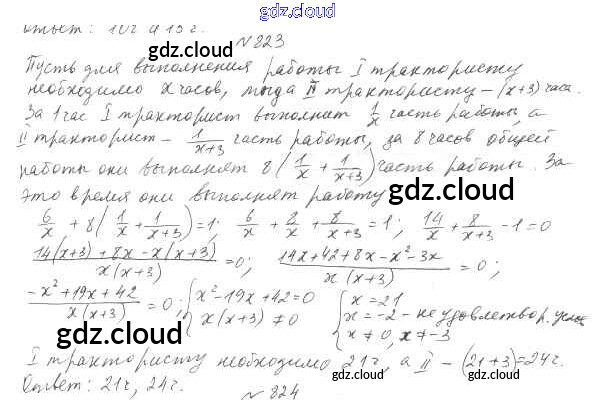 gdz.cloud
ответ: 10г и 15г.
gdz.cloud
№ 823
Пусть для выполнения работы I трактористу
необходимо x часов, тогда II трактористу – (x+3) часа.
За 1 час I тракторист выполнит 1/x часть работы, а
II тракторист – 1/(x+3) часть работы, за 8 часов общей
работы они выполнят 8(1/x + 1/(x+3)) часть работы. За
это время они выполнят работу
gdz.cloud
6/x + 8(1/x + 1/(x+3)) = 1; 6/x + 8/x + 8/(x+3) = 1; 14/x + 8/(x+3) - 1 = 0
(14(x+3) + 8x - x(x+3))/(x(x+3)) = 0; (14x + 42 + 8x - x² - 3x)/(x(x+3)) = 0;
(-x² + 19x + 42)/(x(x+3)) = 0; { x² - 19x + 42 = 0 { x = 21
x(x+3) ≠ 0 x = -2 - не удовлетвор. услов.
x ≠ 0, x ≠ -3
gdz.cloud
I трактористу необходимо 21ч, а II – (21+3)=24ч.
gdz.cloud
Ответ: 21ч, 24ч.
№ 824
gdz.cloud